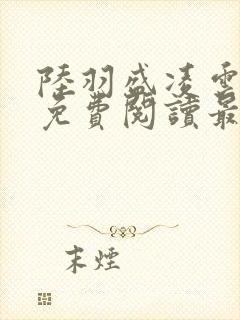 陸羽盛凌雲
免費閱讀最
末煙